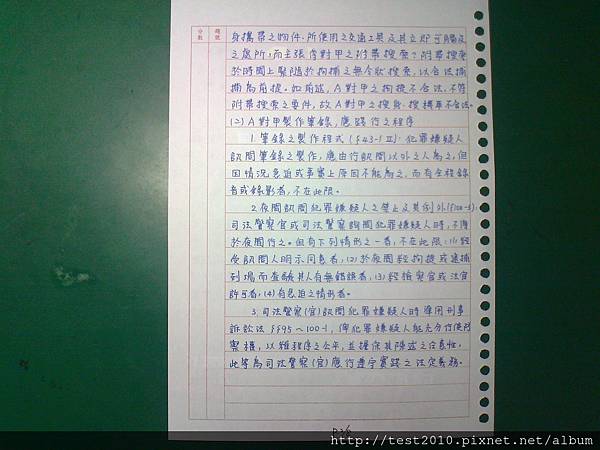 分數
題號
身攜帶之物件、所使用之交通工具及其立即可觸及
之處所,而主張得對甲之附帶搜索?附帶搜索
於時間上緊隨於拘捕之無令狀搜索,以合法拘
捕為前提。如前述,A對甲之拘提不合法,不符
附帶搜索之要件,故A對甲之搜身、搜機車不合法。
(二)A對甲製作筆錄,應踐行之程序
1.筆錄之製作程式(§43-1 II):犯罪嫌疑人
詢問筆錄之製作,應由行詢問以外之人為之,但
因情況急迫或事實上原因不能為之,而有全程錄
音或錄影者,不在此限。
2.夜間詢問犯罪嫌疑人之禁止及其例外(§100-3):
司法警察官或司法警察詢問犯罪嫌疑人時,不得
於夜間行之。但有下列情形之一者,不在此限:(1)經
受詢問人明示同意者,(2)於夜間經拘提或逮捕
到場而查驗其人有無錯誤者,(3)經檢察官或法官
許可者,(4)有急迫之情形者。
3.司法警察(官)詢問犯罪嫌疑人時準用刑事
訴訟法§§95~100-1,俾犯罪嫌疑人能充分行使防
禦權,以維程序之公平,並擔保其陳述之任意性。
此等為司法警察(官)應行遵守實踐之法定義務。
http://test2010.pixnet.net/album